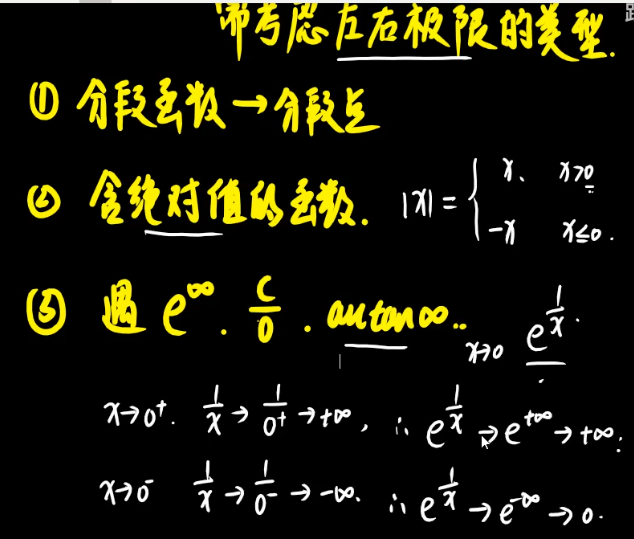 需考虑左右极限的类型.
① 分段函数→分段点
② 含绝对值的函数. |x| = { x, x>0
-x x≤0.
③ 遇 e^∞. c/0. arctan∞..
x→0 e^(1/x).
x→0⁺. 1/x → 1/0⁺ → +∞, ∴ e^(1/x) → e^(+∞) → +∞;
x→0⁻ 1/x → 1/0⁻ → -∞. ∴ e^(1/x) → e^(-∞) → 0.